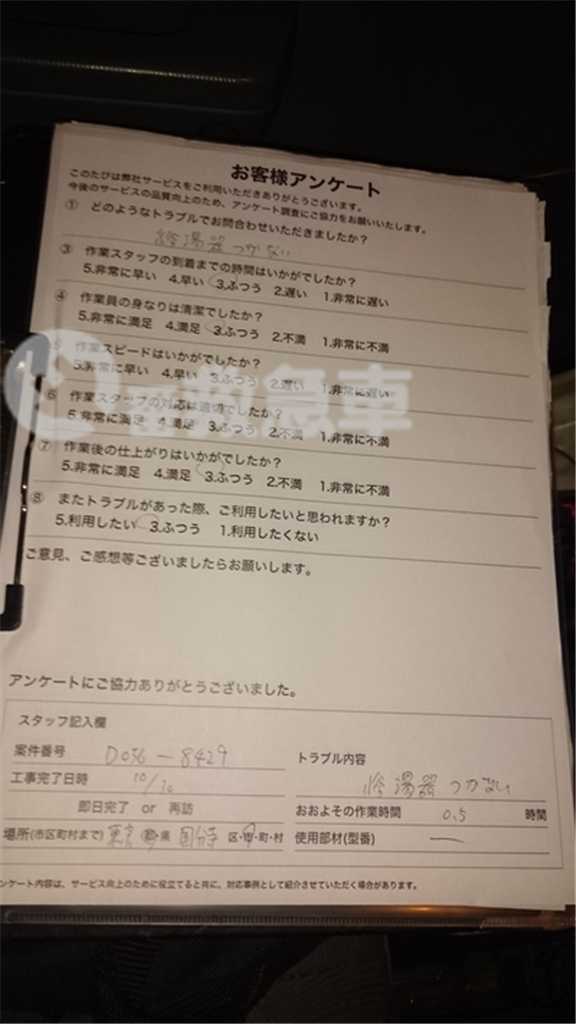 お客様アンケート
このたびは弊社サービスをご利用いただきありがとうございます。
今後のサービスの品質向上のため、アンケート調査にご協力をお願いいたします。
① どのようなトラブルでお問合わせいただきましたか？
給湯器つかない
③ 作業スタッフの到着までの時間はいかがでしたか？
5.非常に早い 4.早い 3.ふつう 2.遅い 1.非常に遅い
④ 作業員の身なりは清潔でしたか？
5.非常に満足 4.満足 3.ふつう 2.不満 1.非常に不満
作業スピードはいかがでしたか？
5.非常に早い 4.早い 3.ふつう 2.遅い 1.非常に遅い
⑥ 作業スタッフの対応は適切でしたか？
5.非常に満足 4.満足 3.ふつう 2.不満 1.非常に不満
⑦ 作業後の仕上がりはいかがでしたか？
5.非常に満足 4.満足 3.ふつう 2.不満 1.非常に不満
⑧ またトラブルがあった際、ご利用したいと思われますか？
5.利用したい 3.ふつう 1.利用したくない
ご意見、ご感想等ございましたらお願いします。
アンケートにご協力ありがとうございました。
スタッフ記入欄
案件番号 D056-8429
トラブル内容 給湯器つかない
工事完了日時 10/10
即日完了 or 再訪
おおよその作業時間 0.5 時間
場所(市区町村まで) 東京 都・県 国分寺 区・市・町・村
使用部材(型番) ー
ンケート内容は、サービス向上のために役立てると共に、対応事例として紹介させていただく場合があります。
急車